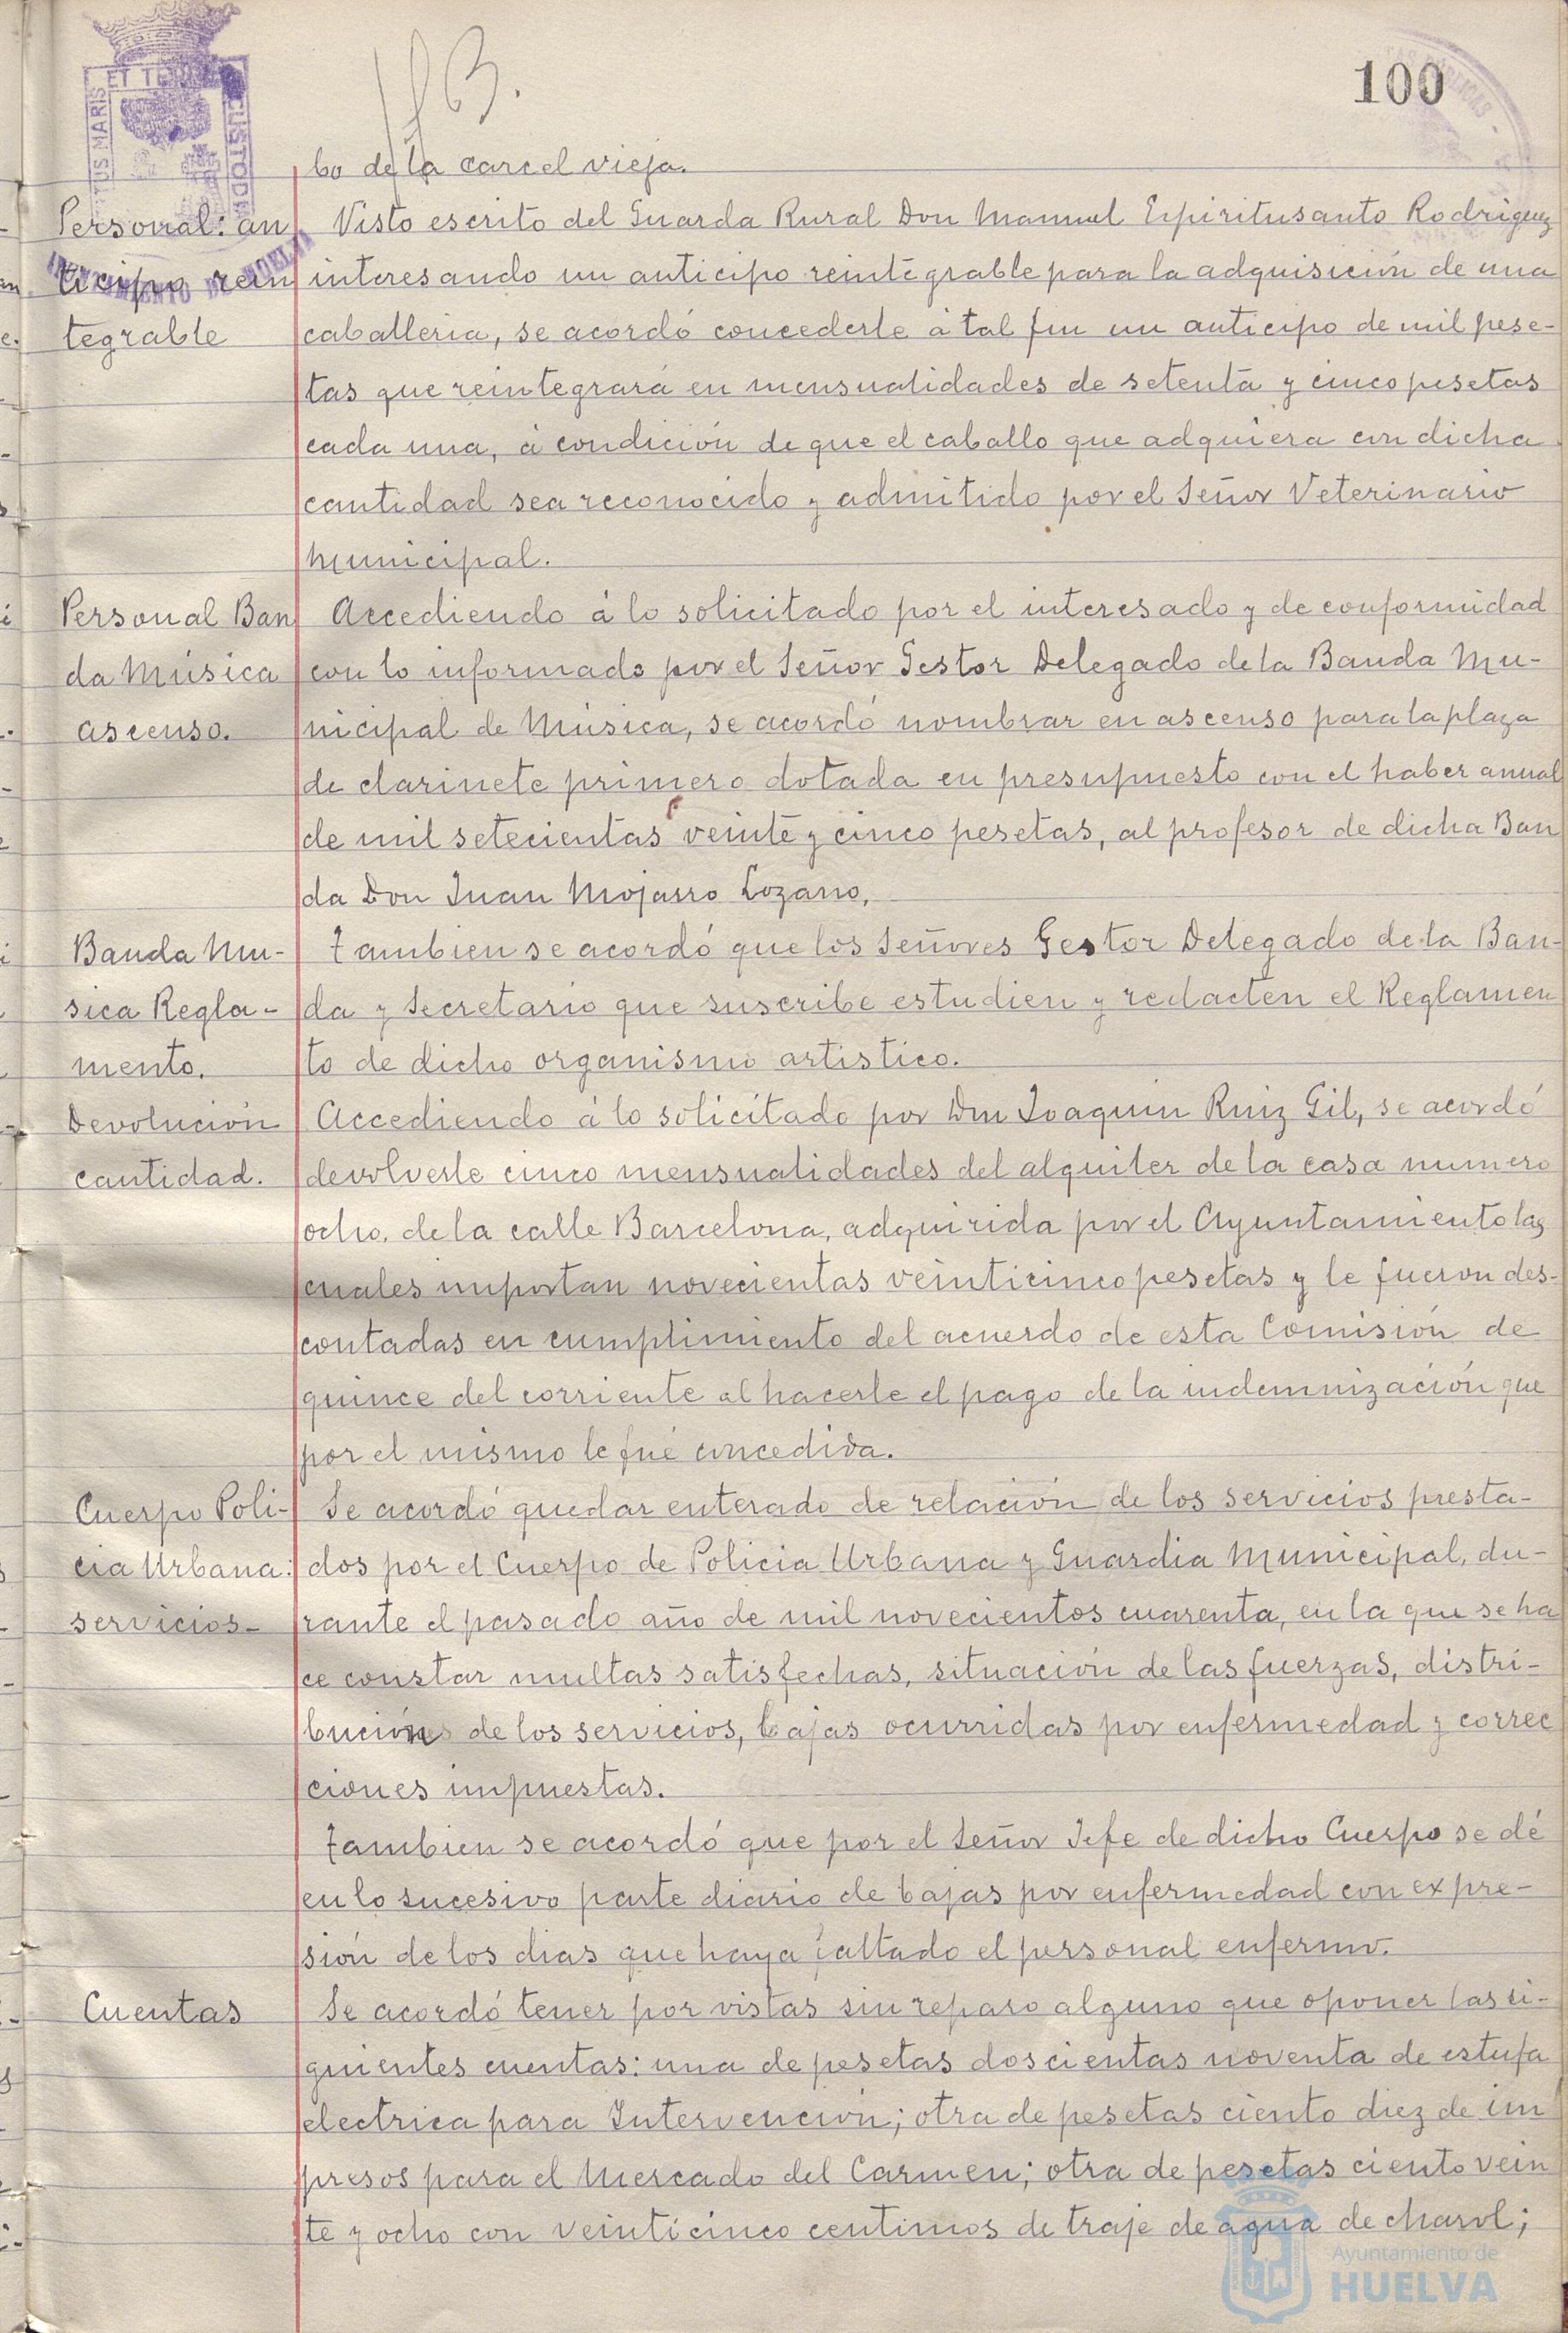 100
bo de la carcel vieja.
Personal: an
ticipo rein
tegrable
Visto escrito del Guarda Rural Don Manuel Espiritusanto Rodriguez
interesando un anticipo reintegrable para la adquisición de una
caballeria, se acordó concederle á tal fin un anticipo de mil pese-
tas que reintegrará en mensualidades de setenta y cinco pesetas
cada una, á condición de que el caballo que adquiera con dicha
cantidad sea reconocido y admitido por el Señor Veterinario
Municipal.
Personal Ban
da Música
ascenso.
Accediendo á lo solicitado por el interesado y de conformidad
con lo informado por el Señor Gestor Delegado de la Banda Mu-
nicipal de Música, se acordó nombrar en ascenso para la plaza
de clarinete primero dotada en presupuesto con el haber anual
de mil setecientas veinte y cinco pesetas, al profesor de dicha Ban
da Don Juan Mojarro Lozano,
Banda Mu-
sica Regla-
mento.
Tambien se acordó que los Señores Gestor Delegado de la Ban-
da y Secretario que suscribe estudien y redacten el Reglamen
to de dicho organismo artistico.
Devolución
cantidad.
Accediendo á lo solicitado por Don Joaquin Ruiz Gil, se acordó
devolverle cinco mensualidades del alquiler de la casa numero
ocho, de la calle Barcelona, adquirida por el Ayuntamiento las
cuales importan novecientas veinticinco pesetas y le fueron des-
contadas en cumplimiento del acuerdo de esta Comisión de
quince del corriente al hacerle el pago de la indemnización que
por el mismo le fué concedida.
Cuerpo Poli-
cia Urbana:
servicios-
Se acordó quedar enterado de relación de los servicios presta-
dos por el Cuerpo de Policia Urbana y Guardia Municipal, du-
rante el pasado año de mil novecientos cuarenta, en la que se ha
ce constar multas satisfechas, situación de las fuerzas, distri-
buciónes de los servicios, bajas ocurridas por enfermedad y correc
ciones impuestas.
Tambien se acordó que por el Señor Jefe de dicho Cuerpo se dé
en lo sucesivo parte diario de bajas por enfermedad con expre-
sión de los dias que haya faltado el personal enfermo.
Cuentas
Se acordó tener por vistas sin reparo alguno que oponer las si-
guientes cuentas: una de pesetas doscientas noventa de estufa
electrica para Intervención; otra de pesetas ciento diez de im
presos para el Mercado del Carmen; otra de pesetas ciento vein
te y ocho con veinticinco centimos de traje de agua de charol;
Ayuntamiento de
HUELVA